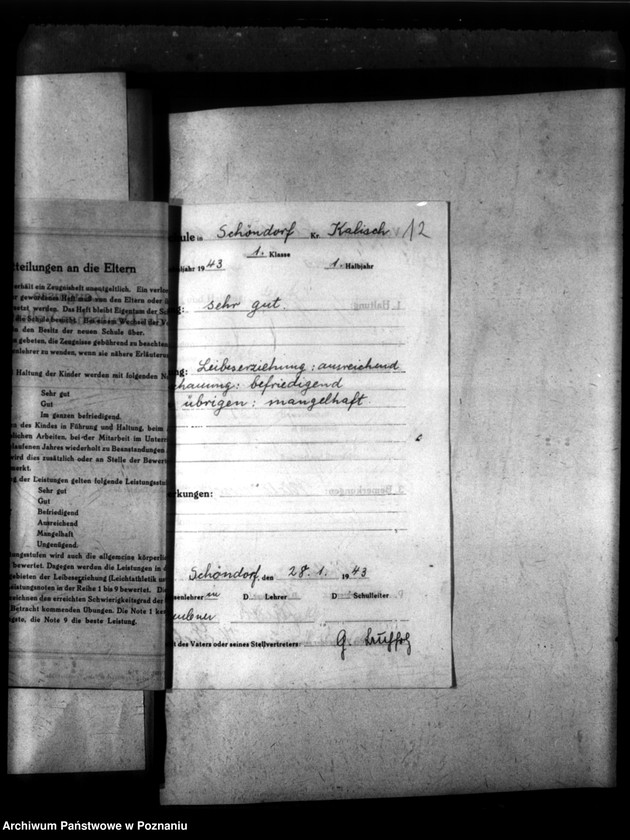 tteilungen an die Eltern
erhält ein Zeugnisheft unentgeltlich. Ein verlor
gewordenes Heft muß von den Eltern oder
setzt werden. Das Heft bleibt Eigentum der Sch
die Schule
in den Besitz der neuen Schule über.
gebeten, die Zeugnisse gebührend zu beachten
enlehrer zu wenden, wenn sie nähere Erläuterun
Haltung der Kinder werden mit folgenden N
Sehr gut
Gut
Im ganzen befriedigend.
en des Kindes in Führung und Haltung, beim
dlichen Arbeiten, bei der Mitarbeit im Unterri
laufenen Jahres wiederholt zu Beanstandungen
wird dies zusätzlich oder an Stelle der Bewert
merkt.
g der Leistungen gelten folgende Leistungsstuf
Sehr gut
Gut
Befriedigend
Ausreichend
Mangelhaft
Ungenügend.
tungsstufen wird auch die allgemeine körperlic
bewertet. Dagegen werden die Leistungen in d
gebieten der Leibeserziehung (Leichtathletik un
istungsnoten in der Reihe 1 bis 9 bewertet. Die
zeichnen den erreichten Schwierigkeitsgrad der
Betracht kommenden Übungen. Die Note 1 bez
igste, die Note 9 die beste Leistung.
12
ule in Schöndorf Kr. Kalisch
1. Klasse
ljahr 1943 1. Halbjahr
g: sehr gut.
ng: Leibeserziehung: ausreichend
chauung: befriedigend
übrigen: mangelhaft
erkungen:
Schöndorf, den 28. 1. 1943
senlehrerin D Lehrer D Schulleiter
t des Vaters oder seines Stellvertreters: G.
Archiwum Państwowe w Poznaniu